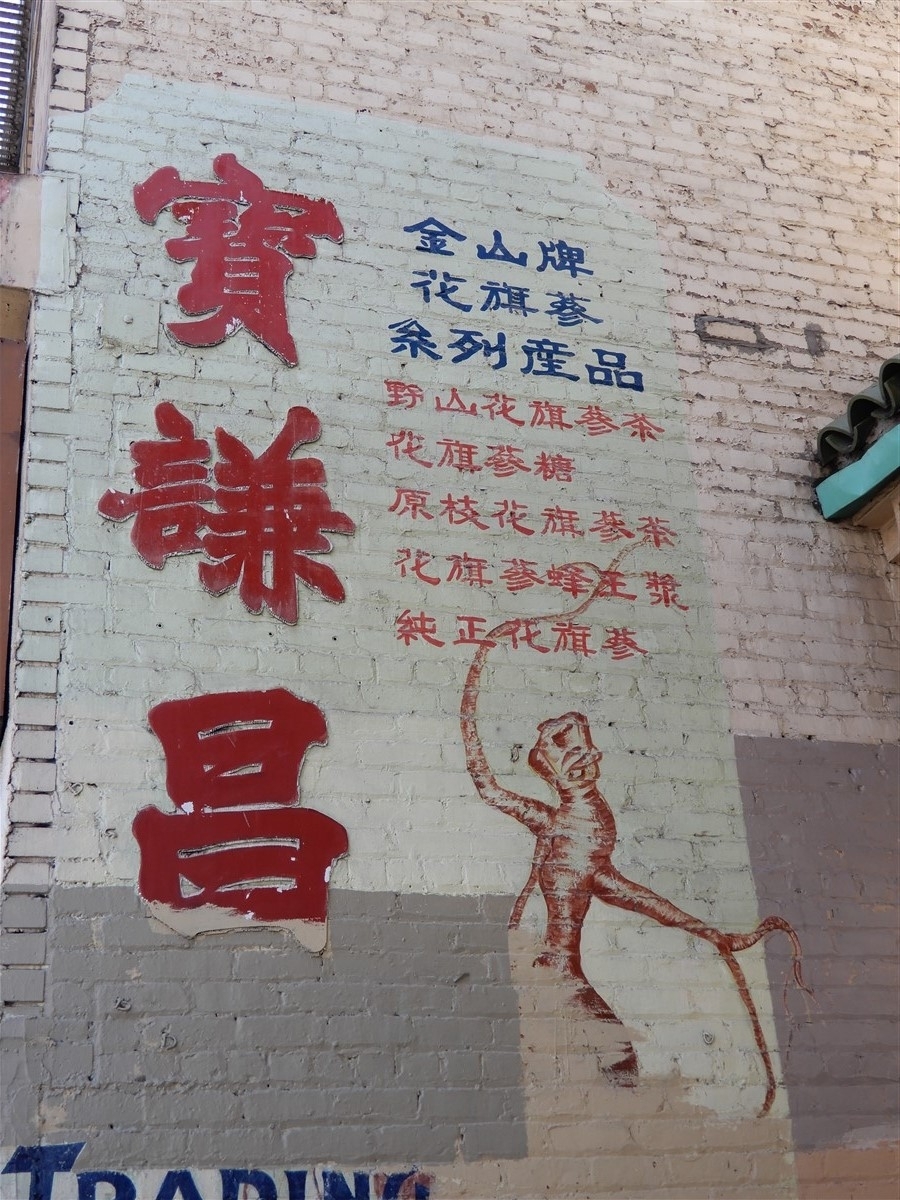 寶謙昌
金山牌
花旗蔘
系列產品
野山花旗蔘茶
花旗蔘糖
原枝花旗蔘茶
花旗蔘蜂王漿
純正花旗蔘
TRADING